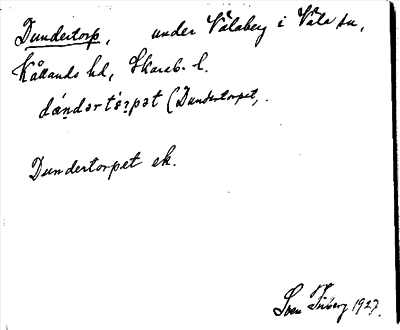 Dundertorp, under Vålaberg i Våla sn,
Kållands hd, Skarab. l.
dándərtórpət (Dundertorpet,.
Dundertorpet ek.
Sven 1927.